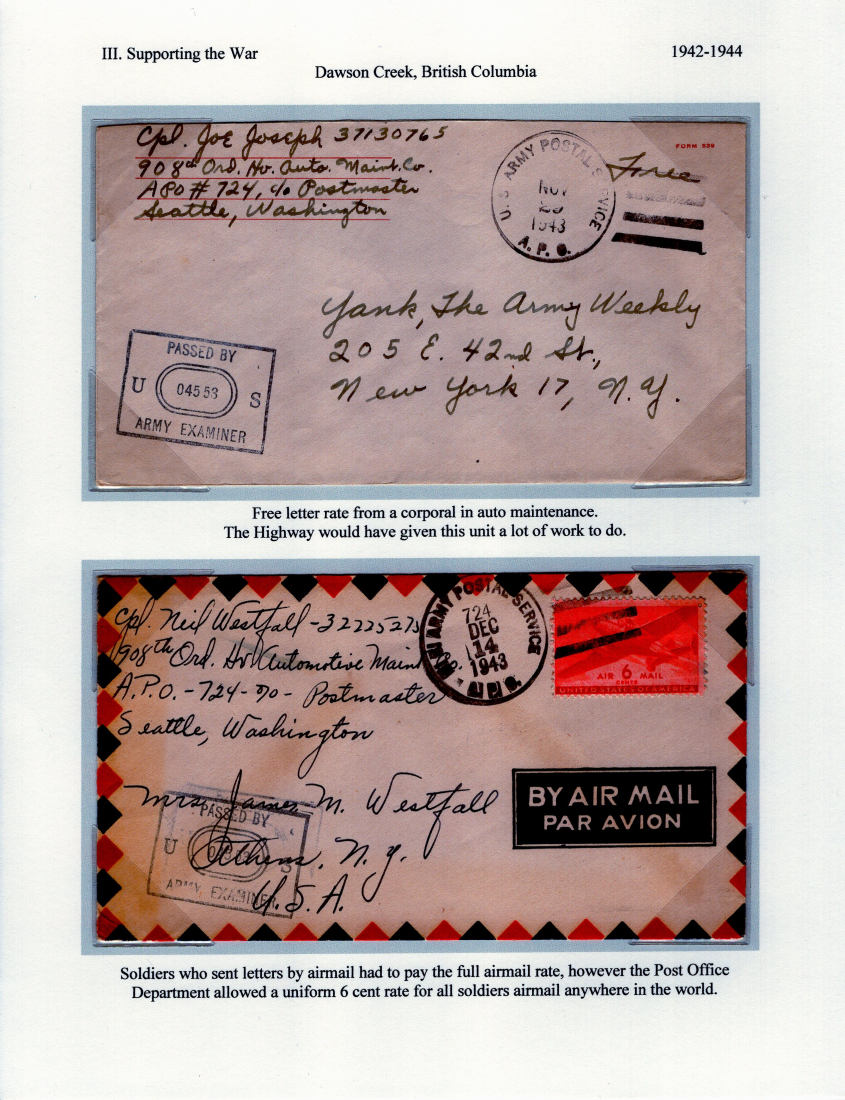 III. Supporting the War
1942-1944
Dawson Creek, British Columbia
Cpl. Joe Joseph 37130765
908th Ord. Hv. Auto. Maint. Co.
APO # 724, c/o Postmaster
Seattle, Washington
U.S. ARMY POSTAL SERVICE
NOV
29
1943
A. P. O.
FORM 539
Free
Yank, The Army Weekly
205 E. 42nd St.,
New York 17, N.Y.
PASSED BY
U 04553 S
ARMY EXAMINER
Free letter rate from a corporal in auto maintenance.
The Highway would have given this unit a lot of work to do.
Cpl. Neil Westfall - 32225275
908th Ord. Hv. Automotive Maint. Co.
A.P.O. - 724 - c/o - Postmaster
Seattle, Washington
ARMY POSTAL SERVICE
724
DEC
14
1943
A.P.O.
AIR 6 MAIL
CENTS
UNITED STATES OF AMERICA
Mrs. James M. Westfall
Athens, N.Y.
U.S.A.
PASSED BY
U S
ARMY EXAMINER
BY AIR MAIL
PAR AVION
Soldiers who sent letters by airmail had to pay the full airmail rate, however the Post Office
Department allowed a uniform 6 cent rate for all soldiers airmail anywhere in the world.